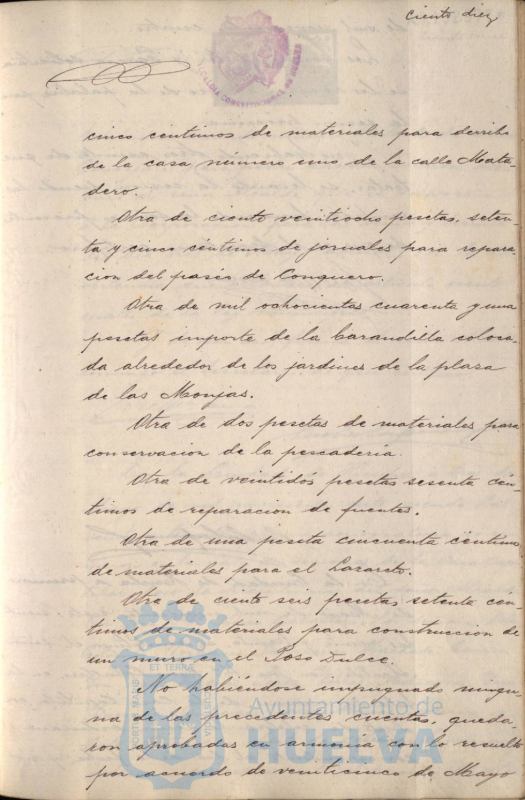 Ciento diez
ALCALDIA CONSTITUCIONAL DE HUELVA
cinco centimos de materiales para derribo
de la casa número uno de la calle Mata-
dero.
Otra de ciento veintiocho pesetas, seten-
ta y cinco céntimos de jornales para repara-
cion del paséo de Conquero.
Otra de mil ochocientas cuarenta y una
pesetas importe de la barandilla coloca-
da alrededor de los jardines de la plaza
de las Monjas.
Otra de dos pesetas de materiales para
conservacion de la pescadería.
Otra de veintidós pesetas sesenta cén-
timos de reparacion de fuentes.
Otra de una peseta cincuenta céntimos
de materiales para el Lazareto.
Otra de ciento seis pesetas setenta cén-
timos de materiales para construccion de
un muro en el Poso Dulce.
No habiéndose impugnado ningu-
na de las precedentes cuentas, queda-
ron aprobadas en armonía con lo resuelto
por acuerdo de veinticinco de Mayo
PORTUS MARIS ET TERRAE CUSTODIA
Ayuntamiento de
HUELVA